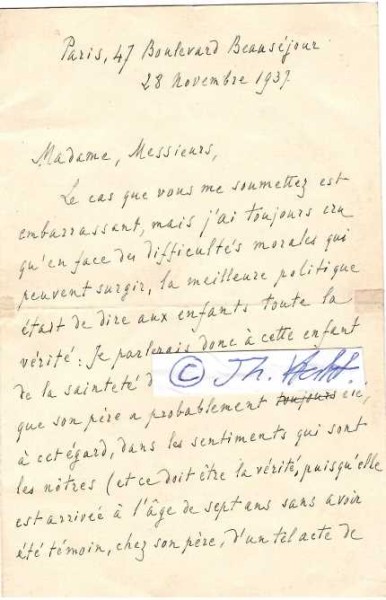 Paris, 47 Boulevard Beauséjour
28 Novembre 1937
Madame, Messieurs,
Le cas que vous me soumettez est
embarrassant, mais j'ai toujours cru
qu'en face des difficultés morales qui
peuvent surgir, la meilleure politique
était de dire aux enfants toute la
vérité : Je parlerais donc à cette enfant
de la sainteté d
© Th.
que son père a probablement toujours été,
à cet égard, dans les sentiments qui sont
les nôtres (et ce doit être la vérité, puisqu'elle
est arrivée à l'âge de sept ans sans avoir
été témoin, chez son père, d'un tel acte de